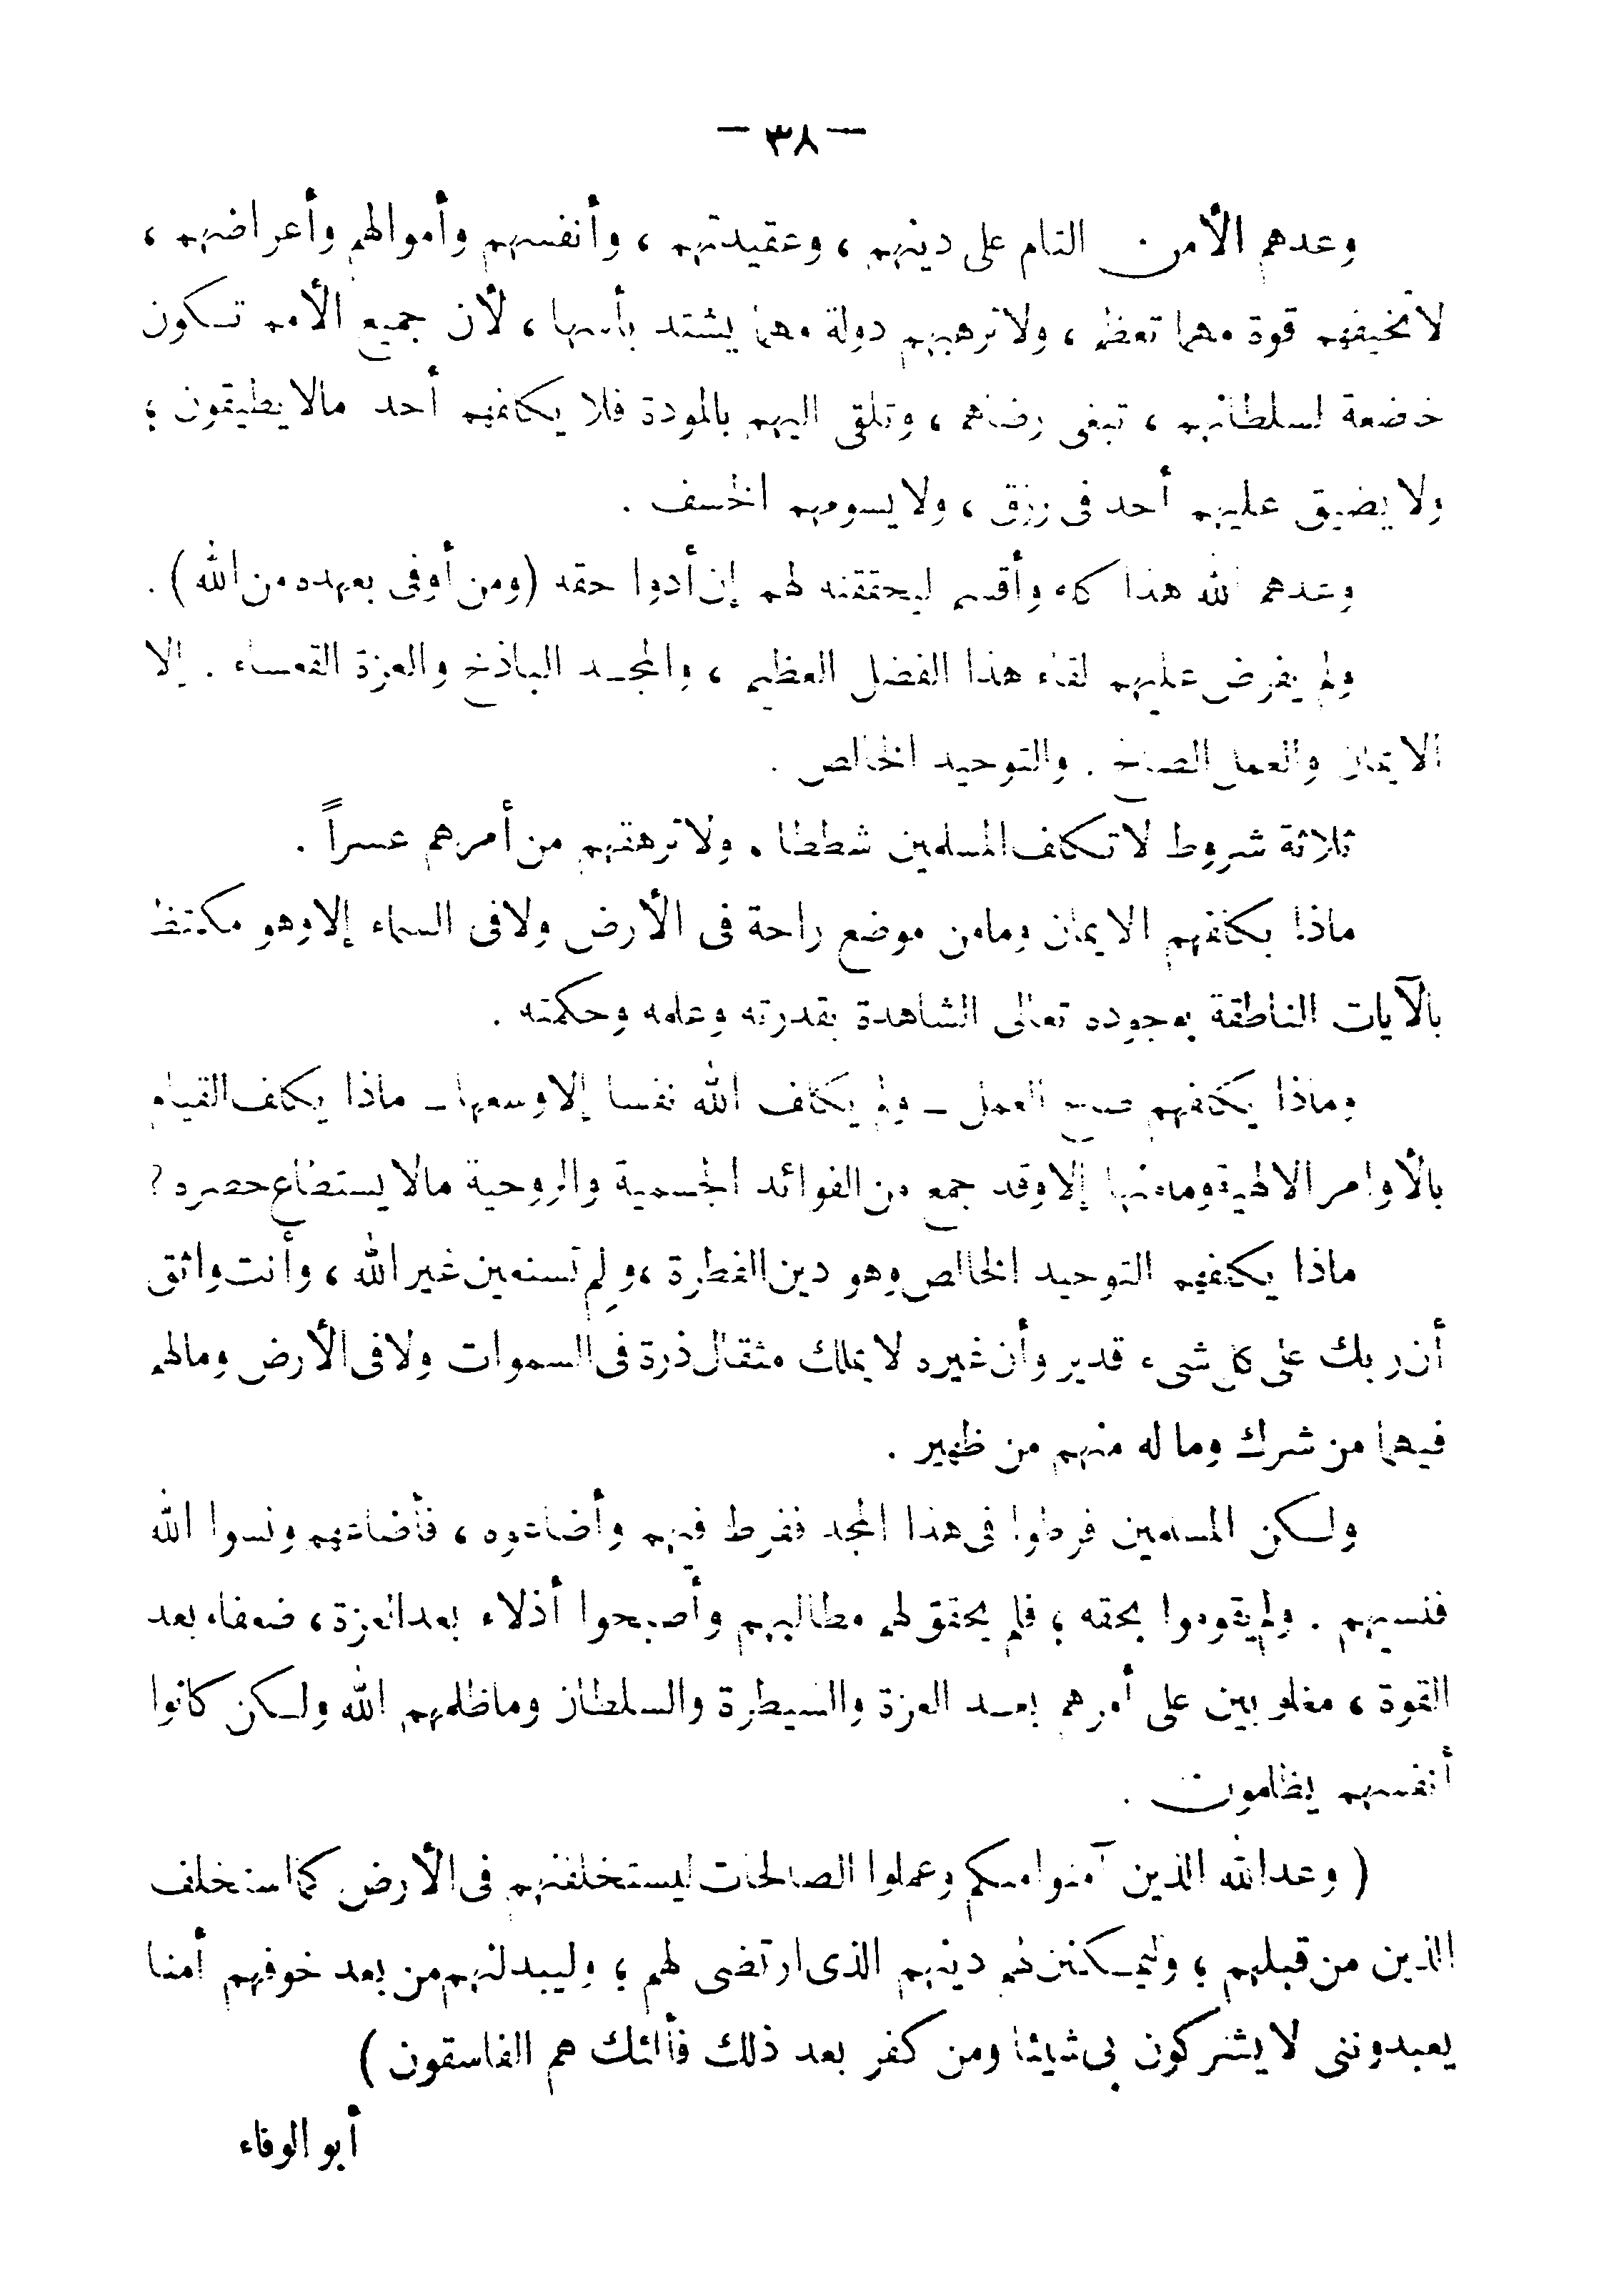 — ٣٨ —
وعدهم الأمن التام على دينهم ، وعقيدتهم ، وأنفسهم وأموالهم وأعراضهم ،
لا تخيفهم قوة مهما تعظم ، ولا ترهبهم دولة مهما يشتد بأسها ، لأن جميع الأمم تكون
خاضعة لسلطانهم ، تبغى رضاهم ، وتلقى اليهم بالمودة فلا يكلفهم أحد مالا يطيقون ؛
ولا يضيق عليهم أحد فى رزق ، ولا يسومهم الخسف .
وعدهم الله هذا كله وأقسم ليحققنه لهم إن أدوا حقه (ومن أوفى بعهده من الله) .
ولم يفرض عليهم لقاء هذا الفضل العظيم ، والمجد الباذخ والعزة القعساء . إلا
الايمان والعمل الصالح . والتوحيد الخالص .
ثلاثة شروط لا تكلف المسلمين شططا . ولا ترهقهم من أمرهم عسراً .
ماذا يكلفهم الايمان وما من موضع راحة فى الأرض ولا فى السماء إلا وهو مكتظ
بالآيات الناطقة بوجوده تعالى الشاهدة بقدرته وعلمه وحكمته .
وماذا يكلفهم صالح العمل – ولم يكلف الله نفسا إلا وسعها – ماذا يكلف القيام
بالأوامر الالهية وما منها إلا وقد جمع من الفوائد الجسمية والروحية مالا يستطاع حصره ؟
ماذا يكلفهم التوحيد الخالص وهو دين الفطرة ، ولِم تستعين غير الله ، وأنت واثق
أن ربك على كل شىء قدير وأن غيره لا يملك مثقال ذرة فى السموات ولا فى الأرض ومالهم
فيهما من شرك وما له منهم من ظهير .
ولكن المسلمين فرطوا فى هذا المجد ففرط فيهم وأضاعوه ، فأضاعهم ونسوا الله
فنسيهم . ولم يقوموا بحقه ؛ فلم يحقق لهم مطالبهم وأصبحوا أذلاء بعد العزة ، ضعفاء بعد
القوة ، مغلوبين على أمرهم بعد العزة والسيطرة والسلطان وما ظلمهم الله ولكن كانوا
أنفسهم يظلمون .
( وعد الله الذين آمنوا منكم وعملوا الصالحات ليستخلفنهم فى الأرض كما استخلف
الذين من قبلهم ؛ وليمكنن لهم دينهم الذى ارتضى لهم ؛ وليبدلنهم من بعد خوفهم أمنا
يعبدوننى لا يشركون بى شيئا ومن كفر بعد ذلك فألئك هم الفاسقون )
أبو الوفاء